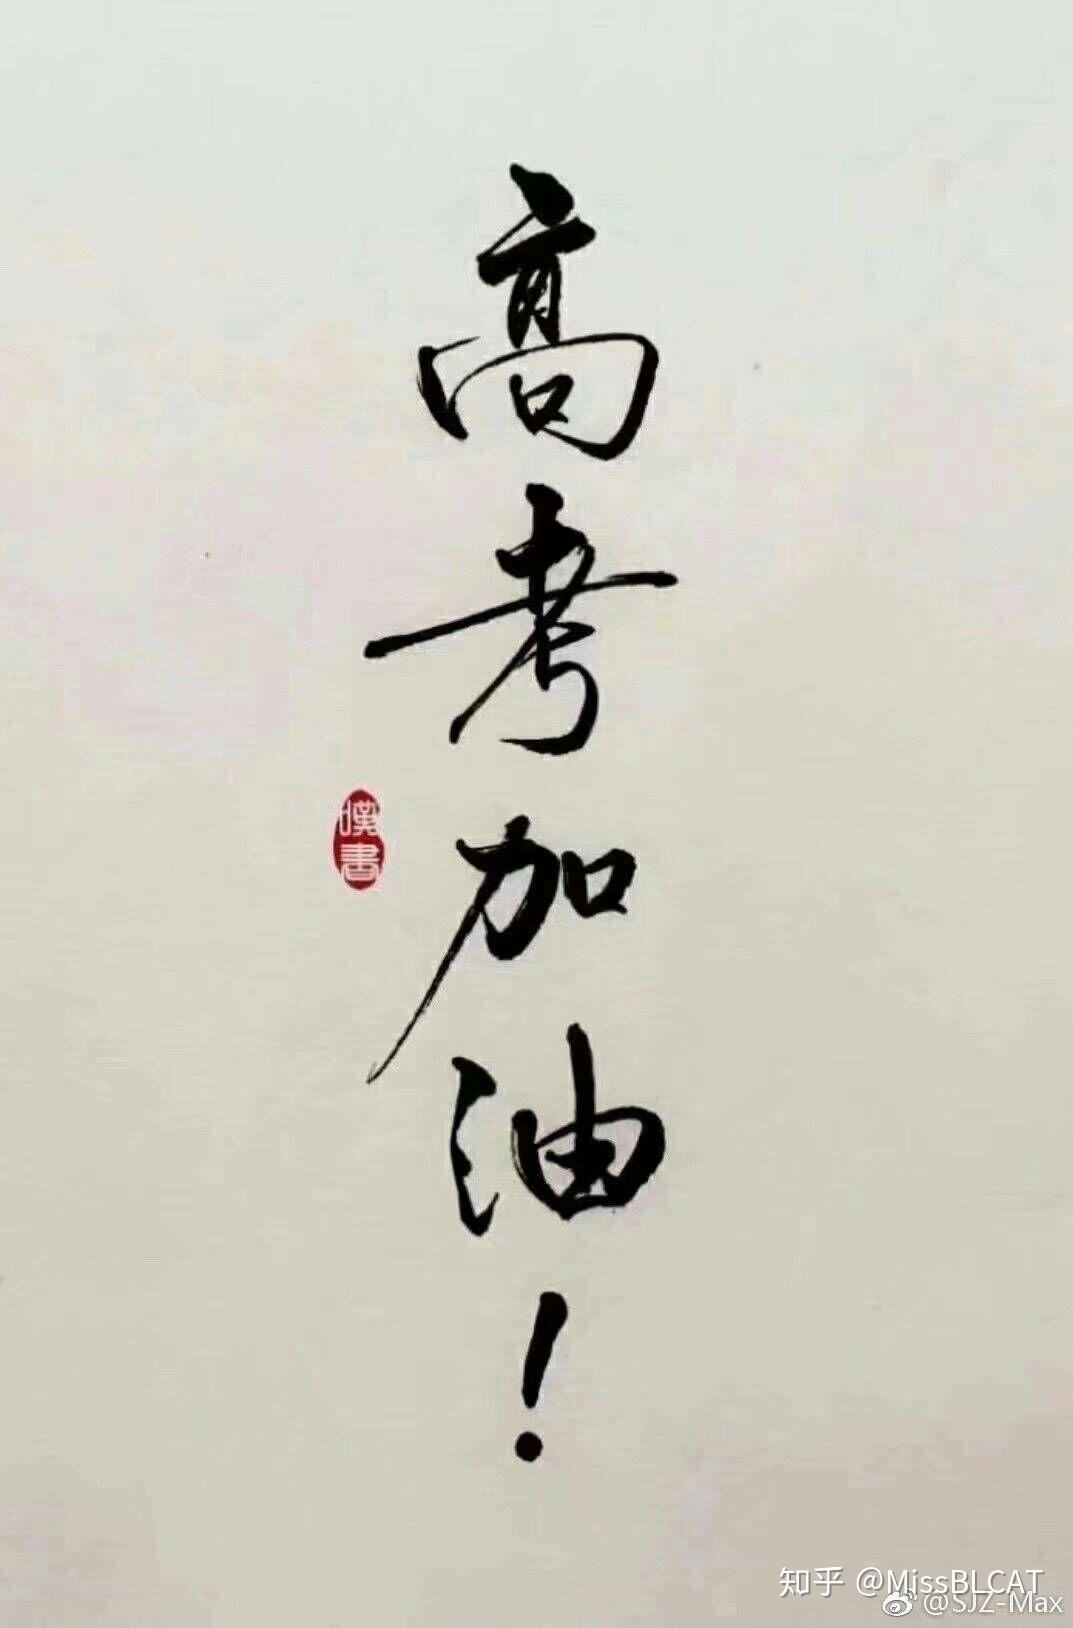 高考加油！
知乎 @MissBLCAT
@SJZ-Max